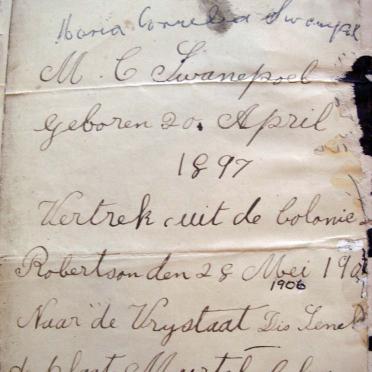 Maria Cornelia Swanepoel
M. C Swanepoel
geboren 20. April
1897
Vertrek uit de Colonie
Robertson den 28 Mei 190
1906
Naar de Vrystaat Dis Senek
de plaat